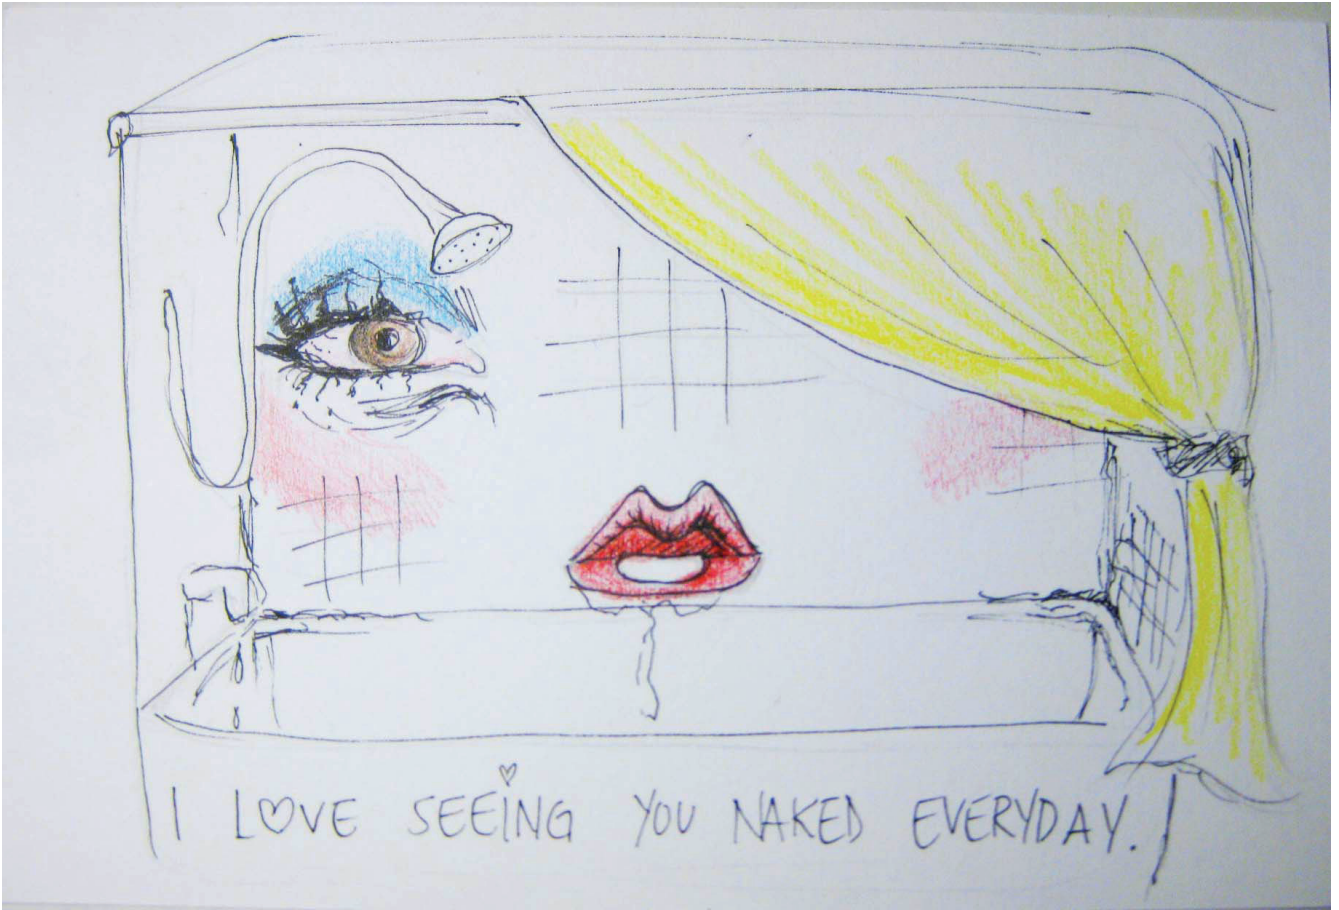 I LOVE SEEING YOU NAKED EVERYDAY.